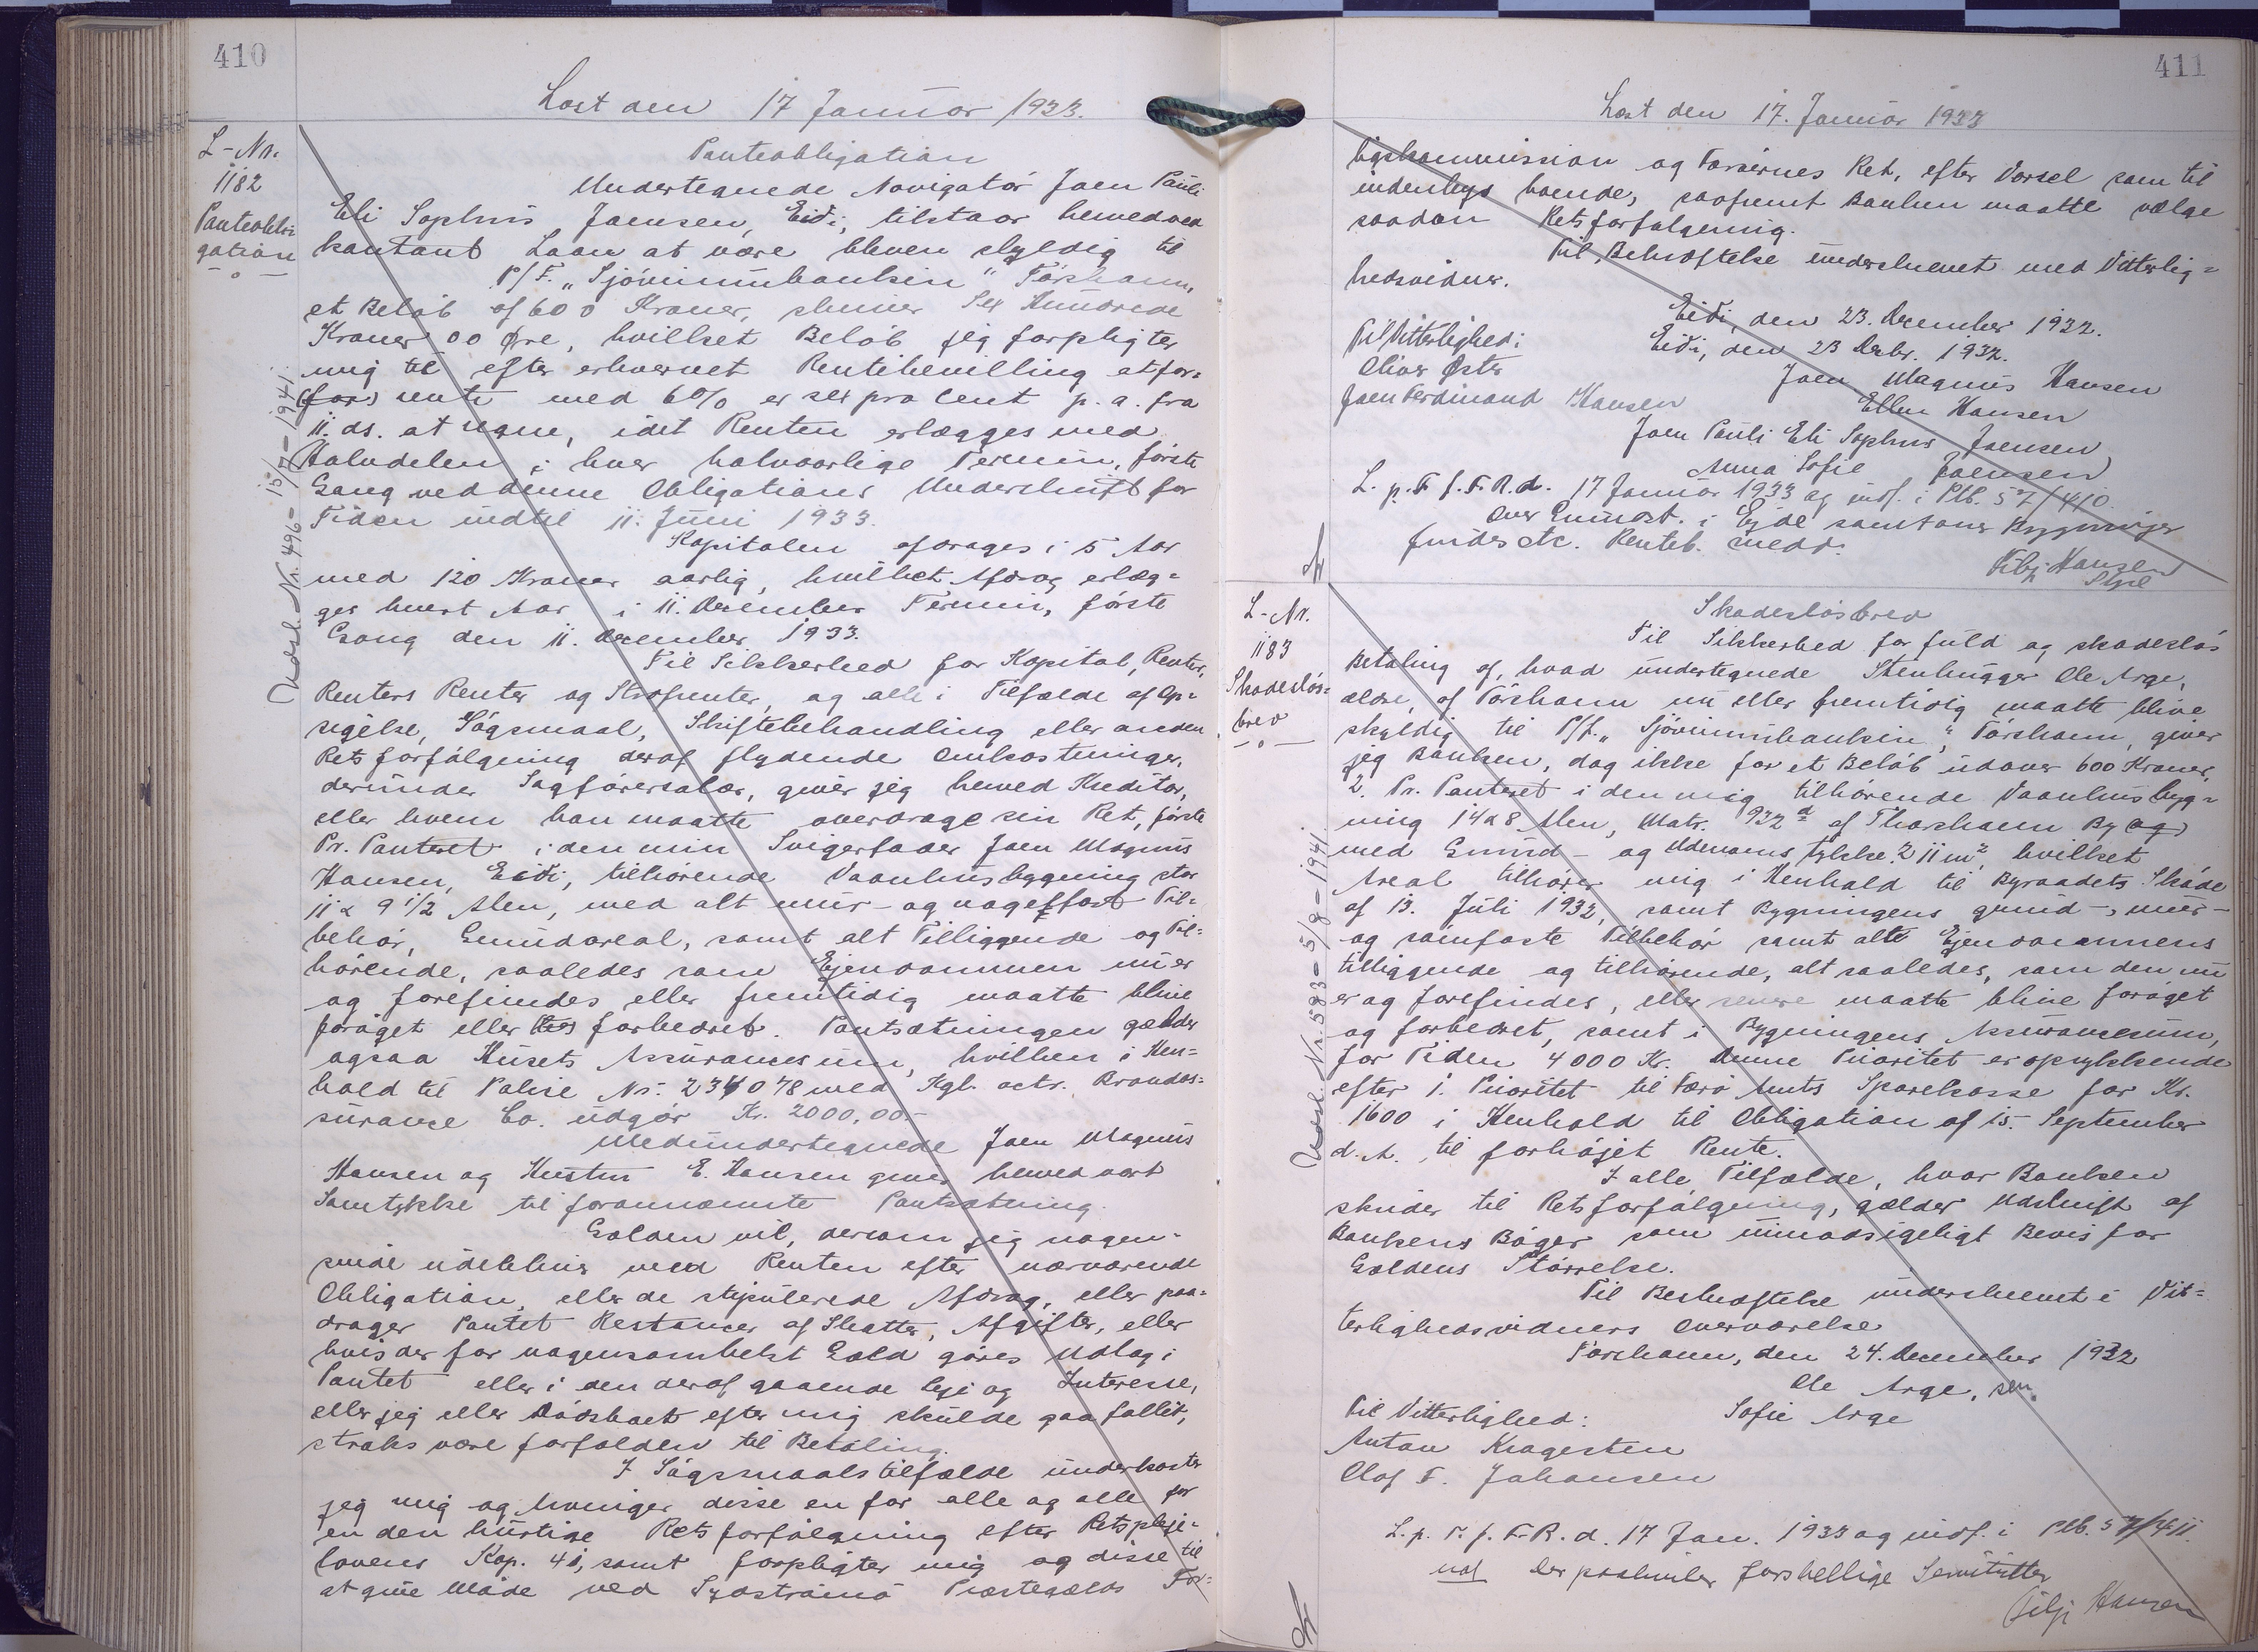 410
Læst den 17 Januar 1933.
L-Nr.
1182
Panteobli=
gation
Udsl. Nr. 496 - 15/7 - 1941.
Panteobligation
Undertegnede Navigatør Joen Pauli
Eli Sophus Joensen, Eidi, tilstaar herved ved
kontant Laan at være bleven skyldig til
P/F. „Sjóvinnubankin" Tórshavn,
et Beløb af 600 Kroner, skriver Sex Hundrede
Kroner 00 Øre, hvilket Beløb jeg forpligter
mig til efter erhvervet Rentebevilling at for=
(for) rente med 6% er sex pro Cent p. a. fra
11. ds. at regne, idet Renten erlægges med
Halvdelen i hver halvaarlige Termin, første
Gang ved denne Obligations Underskrift for
Tiden indtil 11. Juni 1933.
Kapitalen afdrages i 5 Aar
med 120 Kroner aarlig, hvilket Afdrag erlæg=
ges hvert Aar i 11. December Termin, første
Gang den 11. December 1933.
Til Sikkerhed for Kapital, Renter,
Renters Renter og Strafrente, og alle i Tilfælde af Op=
sigelse, Søgsmaal, Skiftebehandling eller anden
Retsforfølgning deraf flydende Omkostninger,
derunder Sagførersalær, giver jeg herved Kreditor,
eller hvem han maatte overdrage sin Ret, første
Pr. Panteret i den min Svigerfader Joen Magnus
Hansen, Eidi, tilhørende Vaanhusbygning stor
11 x 9 1/2 Alen, med alt mur- og nagelfast Til=
behør, Grundareal, samt alt Tilliggende og Til=
hørende, saaledes som Ejendommen nu er
og forefindes eller fremtidig maatte blive
forøget eller forbedret. Pantsætningen gælder
ogsaa Husets Assurancesum, hvilken i Hen=
hold til Police Nr. 234078 med Kgl. octr. Brandas=
surance Co. udgør Kr. 2000,00.-
Medundertegnede Joen Magnus
Hansen og Hustru E. Hansen giver herved vort
Samtykke til forannævnte Pantsætning.
Gælden vil, dersom jeg nogen=
sinde udebliver med Renten efter nærværende
Obligation, eller de stipulerede Afdrag, eller paa=
drager Pantet Restancer af Skatter, Afgifter, eller
hvis der for nogensomhelst Gæld gøres Udlæg i
Pantet eller i den deraf gaaende Leje og Interesse,
eller jeg eller Dødsboet efter mig skulde gaa fallit,
straks være forfalden til Betaling.
I Søgsmaalstilfælde underkaster
jeg mig og hvoriger disse en for alle og alle for
en den hurtige Retsforfølgning efter Retspleje=
lovens Kap. 41, samt forpligter mig og disse til
at give Møde ved Sydstrømø Præstegælds For=
411
Læst den 17. Januar 1933
ligskommission og Færøernes Ret, efter Varsel som til
indenbygs boende, saafremt Banken maatte vælge
saadan Retsforfølgning.
Til Bekræftelse underskrevet med Vitterlig=
hedsvidner.
Eidi, den 23. December 1932.
Til Vitterlighed: Eidi, den 23 Decbr. 1932.
Oliver Øster Joen Magnus Hansen
Joen Ferdinand Hansen Ellen Hansen
Joen Pauli Eli Sophus Joensen
Anna Sofie Joensen
L. p. T. f. F. R. d. 17 Januar 1933 og indf. i Ptb. 57/410.
over Grundst. i Ejde samt over Bygninger
findes etc. Renteb. medd.
Filip Hansen
L-Nr.
1183
Skadesløs=
brev
Udsl. Nr. 583 - 5/8 - 1941.
Skadesløsbrev
Til Sikkerhed for fuld og skadesløs
Betaling af, hvad undertegnede Stenhugger Ole Arge,
ældre, af Tórshavn nu eller fremtidig maatte blive
skyldig til P/F. „Sjóvinnubankin", Tórshavn, giver
jeg Banken, dog ikke for et Beløb udover 600 Kroner,
2. Pr. Panteret i den mig tilhørende Vaanhusbyg=
ning 14 x 8 Alen, Matr. 932 d af Thorshavn By (og)
med Grund- og Udenomsstykke 211 m², hvilket
Areal tilhører mig i Henhold til Byraadets Skøde
af 13. Juli 1932, samt Bygningens grund-, mur-
og sømfaste Tilbehør samt alt Ejendommens
tilliggende og tilhørende, alt saaledes, som den nu
er og forefindes, eller senere maatte blive forøget
og forbedret, samt i Bygningens Assurancesum,
for Tiden 4000 Kr. Denne Prioritet er oprykkende
efter 1. Prioritet til Færø Amts Sparekasse for Kr.
1600 i Henhold til Obligation af 15. September
d. A. til forhøjet Rente.
I alle Tilfælde, hvor Banken
skrider til Retsforfølgning, gælder Udskrift af
Bankens Bøger som uimodsigeligt Bevis for
Gældens Størrelse.
Til Bekræftelse underskrevet i Vit=
terlighedsvidners Overværelse
Tórshavn, den 24. December 1932
Ole Arge, sen.
Til Vitterlighed: Sofie Arge
Anton Kragesteen
Olaf F. Johansen
L. p. T. f. F. R. d. 17 Jan. 1933 og indf. i Ptb. 57/411.
Der paahviler forskellige Servitutter
Filip Hansen